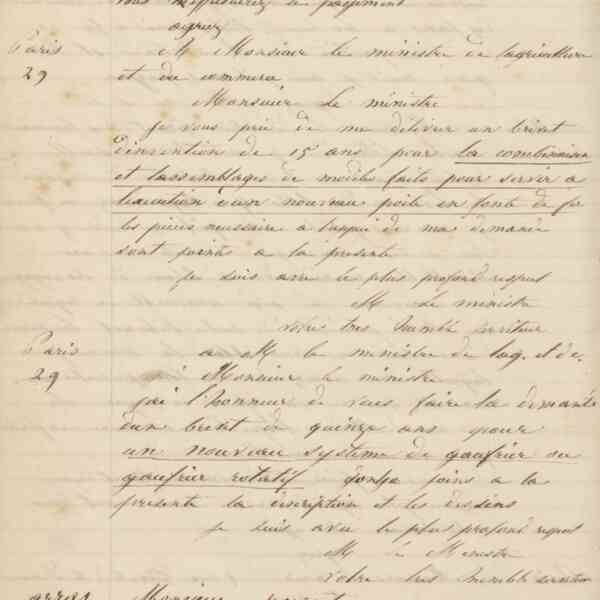 vous effectuerez le payement
agréez
Paris
29
M Monsieur le ministre de lagriculture
et du commerce
Monsieur Le ministre
je vous prie de me délivrer un brevet
d'invention de 15 ans pour la combinaison
et lassemblages de modèles faits pour servir a
lexecution d'un nouveau poële en fonte de fer
les pièces necessaire a l'appui de ma demande
sont joints a la présente
je suis avec le plus profond respect
M Le ministre
votre tres humble serviteur
Paris
29
a M le ministre de l'ag. et de.
Monsieur le ministre
j'ai l'honneur de vous faire la demande
d'un brevet de quinze ans pour
un nouveau systeme de gaufrier ou
gaufrier rotatif joins a la
présente la description et les dessins
je suis avec le plus profond respect
M le Ministre
votre tres humble serviteur
arras Monsieur